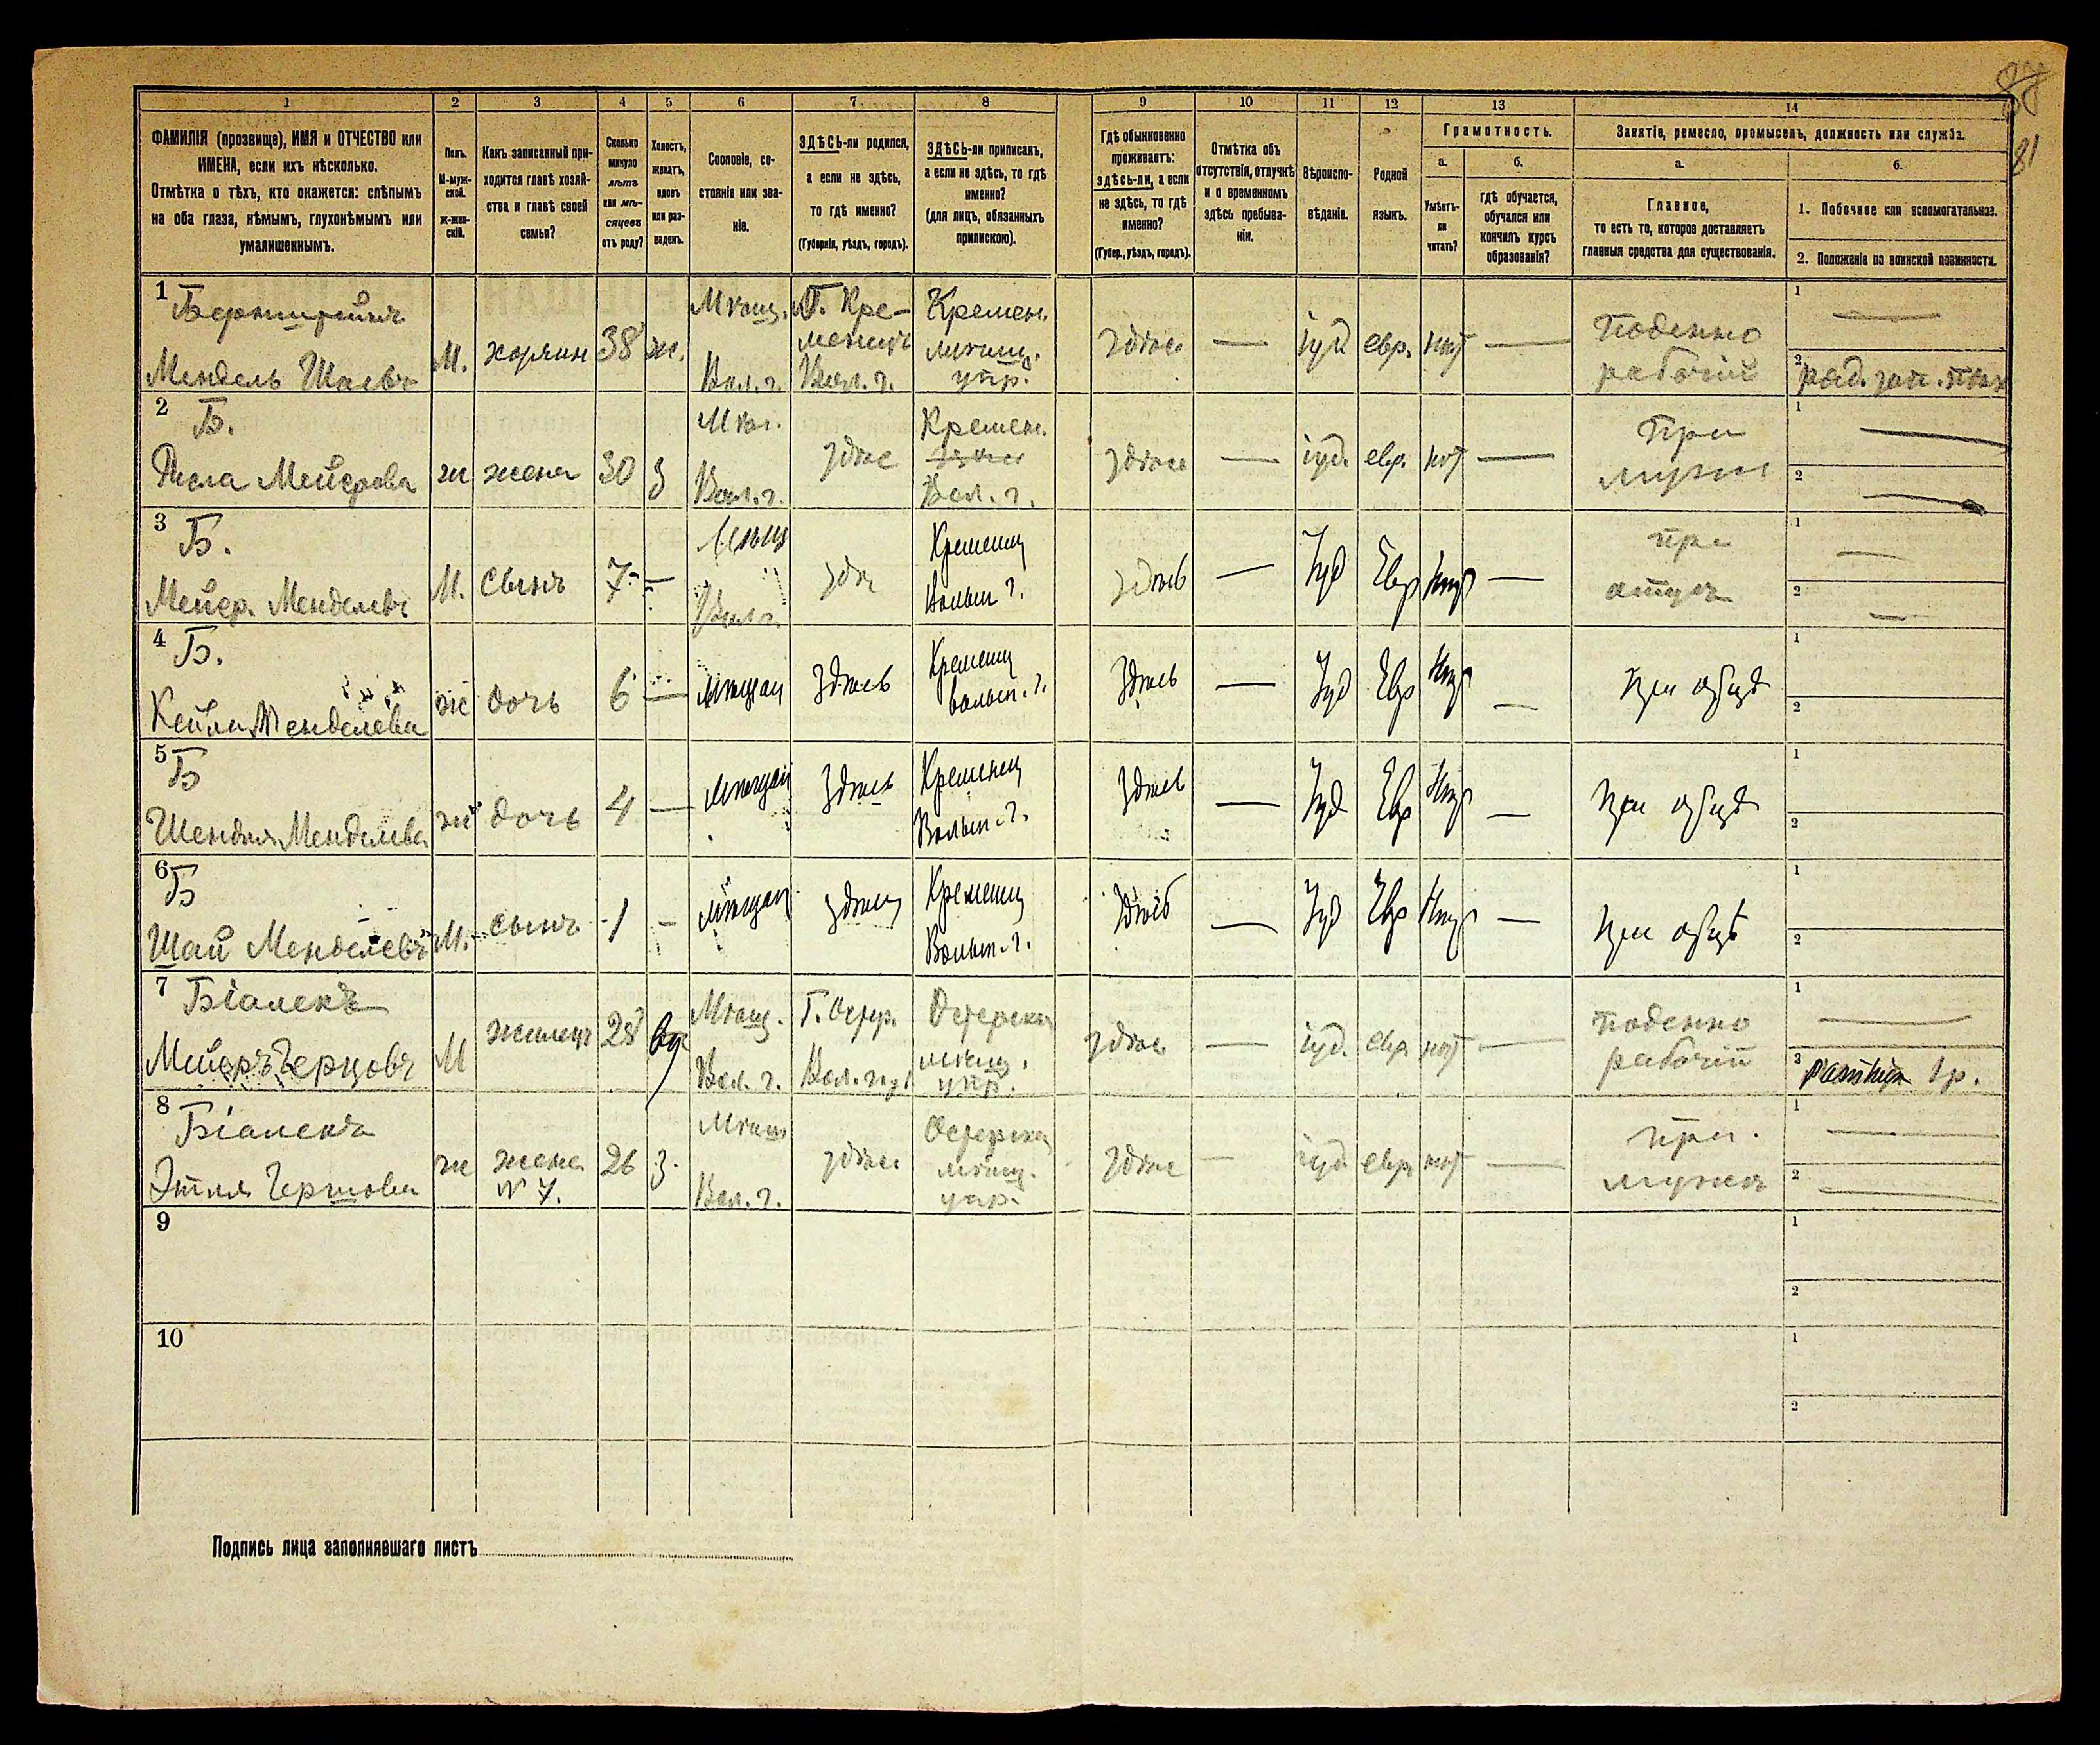 87
81
1 2 3 4 5 6 7 8 9 10 11 12 13 14
ФАМИЛІЯ (прозвище), ИМЯ и ОТЧЕСТВО или
ИМЕНА, если ихъ нѣсколько.
Отмѣтка о тѣхъ, кто окажется: слѣпымъ
на оба глаза, нѣмымъ, глухонѣмымъ или
умалишеннымъ.
Полъ.
М-муж-
ской.
Ж-жен-
скій.
Какъ записанный при-
ходится главѣ хозяй-
ства и главѣ своей
семьи?
Сколько
минуло
лѣтъ
или мѣ-
сяцевъ
отъ роду?
Холостъ,
женатъ,
вдовъ
или раз-
веденъ.
Сословіе, со-
стояніе или зва-
ніе.
ЗДѢСЬ-ли родился,
а если не здѣсь,
то гдѣ именно?
(Губернія, уѣздъ, городъ).
ЗДѢСЬ-ли приписанъ,
а если не здѣсь, то гдѣ
именно?
(для лицъ, обязанныхъ
припискою).
Гдѣ обыкновенно
проживаетъ:
здѣсь-ли, а если
не здѣсь, то гдѣ
именно?
(Губер., уѣздъ, городъ).
Отмѣтка объ
отсутствіи, отлучкѣ
и о временномъ
здѣсь пребыва-
ніи.
Вѣроиспо-
вѣданіе.
Родной
языкъ.
Грамотность.
а.
Умѣетъ-
ли
читать?
б.
гдѣ обучается,
обучался или
кончилъ курсъ
образованія?
Занятіе, ремесло, промыселъ, должность или служба.
а.
Главное,
то есть то, которое доставляетъ
главныя средства для существованія.
б.
1. Побочное или вспомогательное.
2. Положеніе по воинской повинности.
1
Мендель Шаевъ М. хозяинъ 38 ж.
Мѣщ. Вол. г.
Г. Кре-
менецъ
Вол. г.
Кремен.
мѣщ.
упр.
здѣсь — іуд. евр. нѣт —
Поденно
рабочій
1 —
2
2 Б.
Мейерова ж жена 30 З
Мѣщ. Вол. г.
здѣс
Кремен.
Вол. г.
здѣсь — іуд. евр. нѣт —
При
мужѣ
1 —
2 —
3 Б.
Мейер. Менделевъ М. сынъ 7 —
Вол. г.
здѣс
Кременец
Волын г.
здѣсь — Іуд Евр Нѣт —
при
отцѣ
1 —
2 —
4 Б.
Кейла Менделева ж дочь 6 —
мѣщан
Здѣсь
Кременец
волын. г.
Здѣсь — Іуд Евр Нѣт —
при отцѣ
1
2
5 Б
Менделева ж дочь 4 —
мѣщан
Здѣсь
Кременец
Волын. г.
Здѣсь — Іуд Евр Нѣт —
при отцѣ
1
2
6 Б
Шай Менделевъ М. сынъ 1 —
мѣщан
здѣсь
Кременец
Волын. г.
Здѣсь — Іуд Евр Нѣт —
при отцѣ
1
2
7 Біалекъ
Мейеръ Герцовъ М жилецъ 28
Мѣщ. Вол. г.
мѣщ.
упр.
здѣсь — іуд. евр. нѣт —
поденно
рабочій
1 —
2 Ратникъ 1 р.
8 Біалекъ
Этля Гершова ж жена
№ 7. 26 З.
Мѣщ Вол. г.
здѣсь
мѣщ.
упр.
здѣс — іуд евр нѣт —
При.
мужѣ
1 —
2 —
9
1
2
10
1
2
Подпись лица заполнявшаго листъ